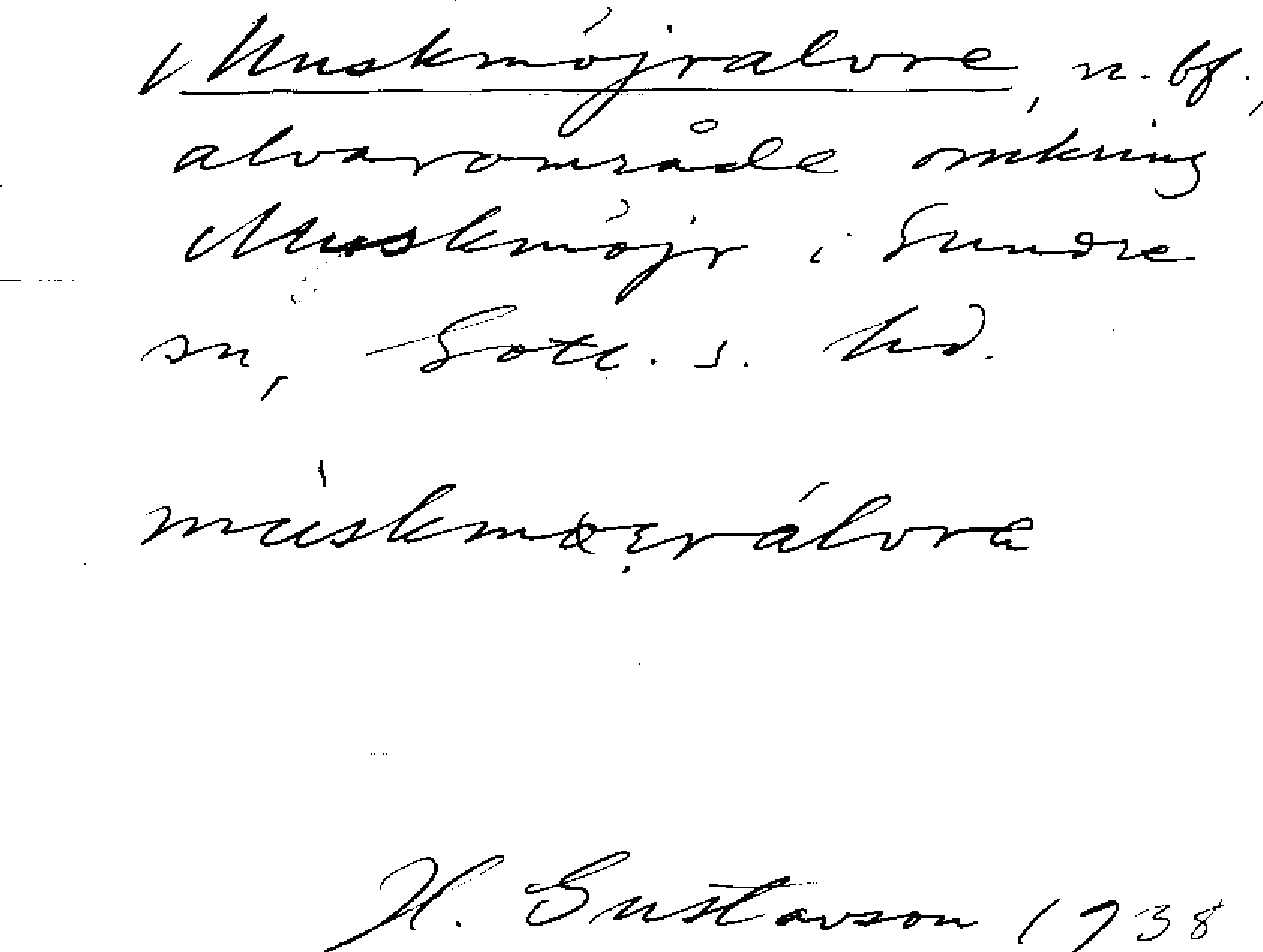 Muskmöjralvre, n. bf.,
alvarområde omkring
Muskmöjr i Sundre
sn, Gotl. s. hd.
H. Gustavson 1938